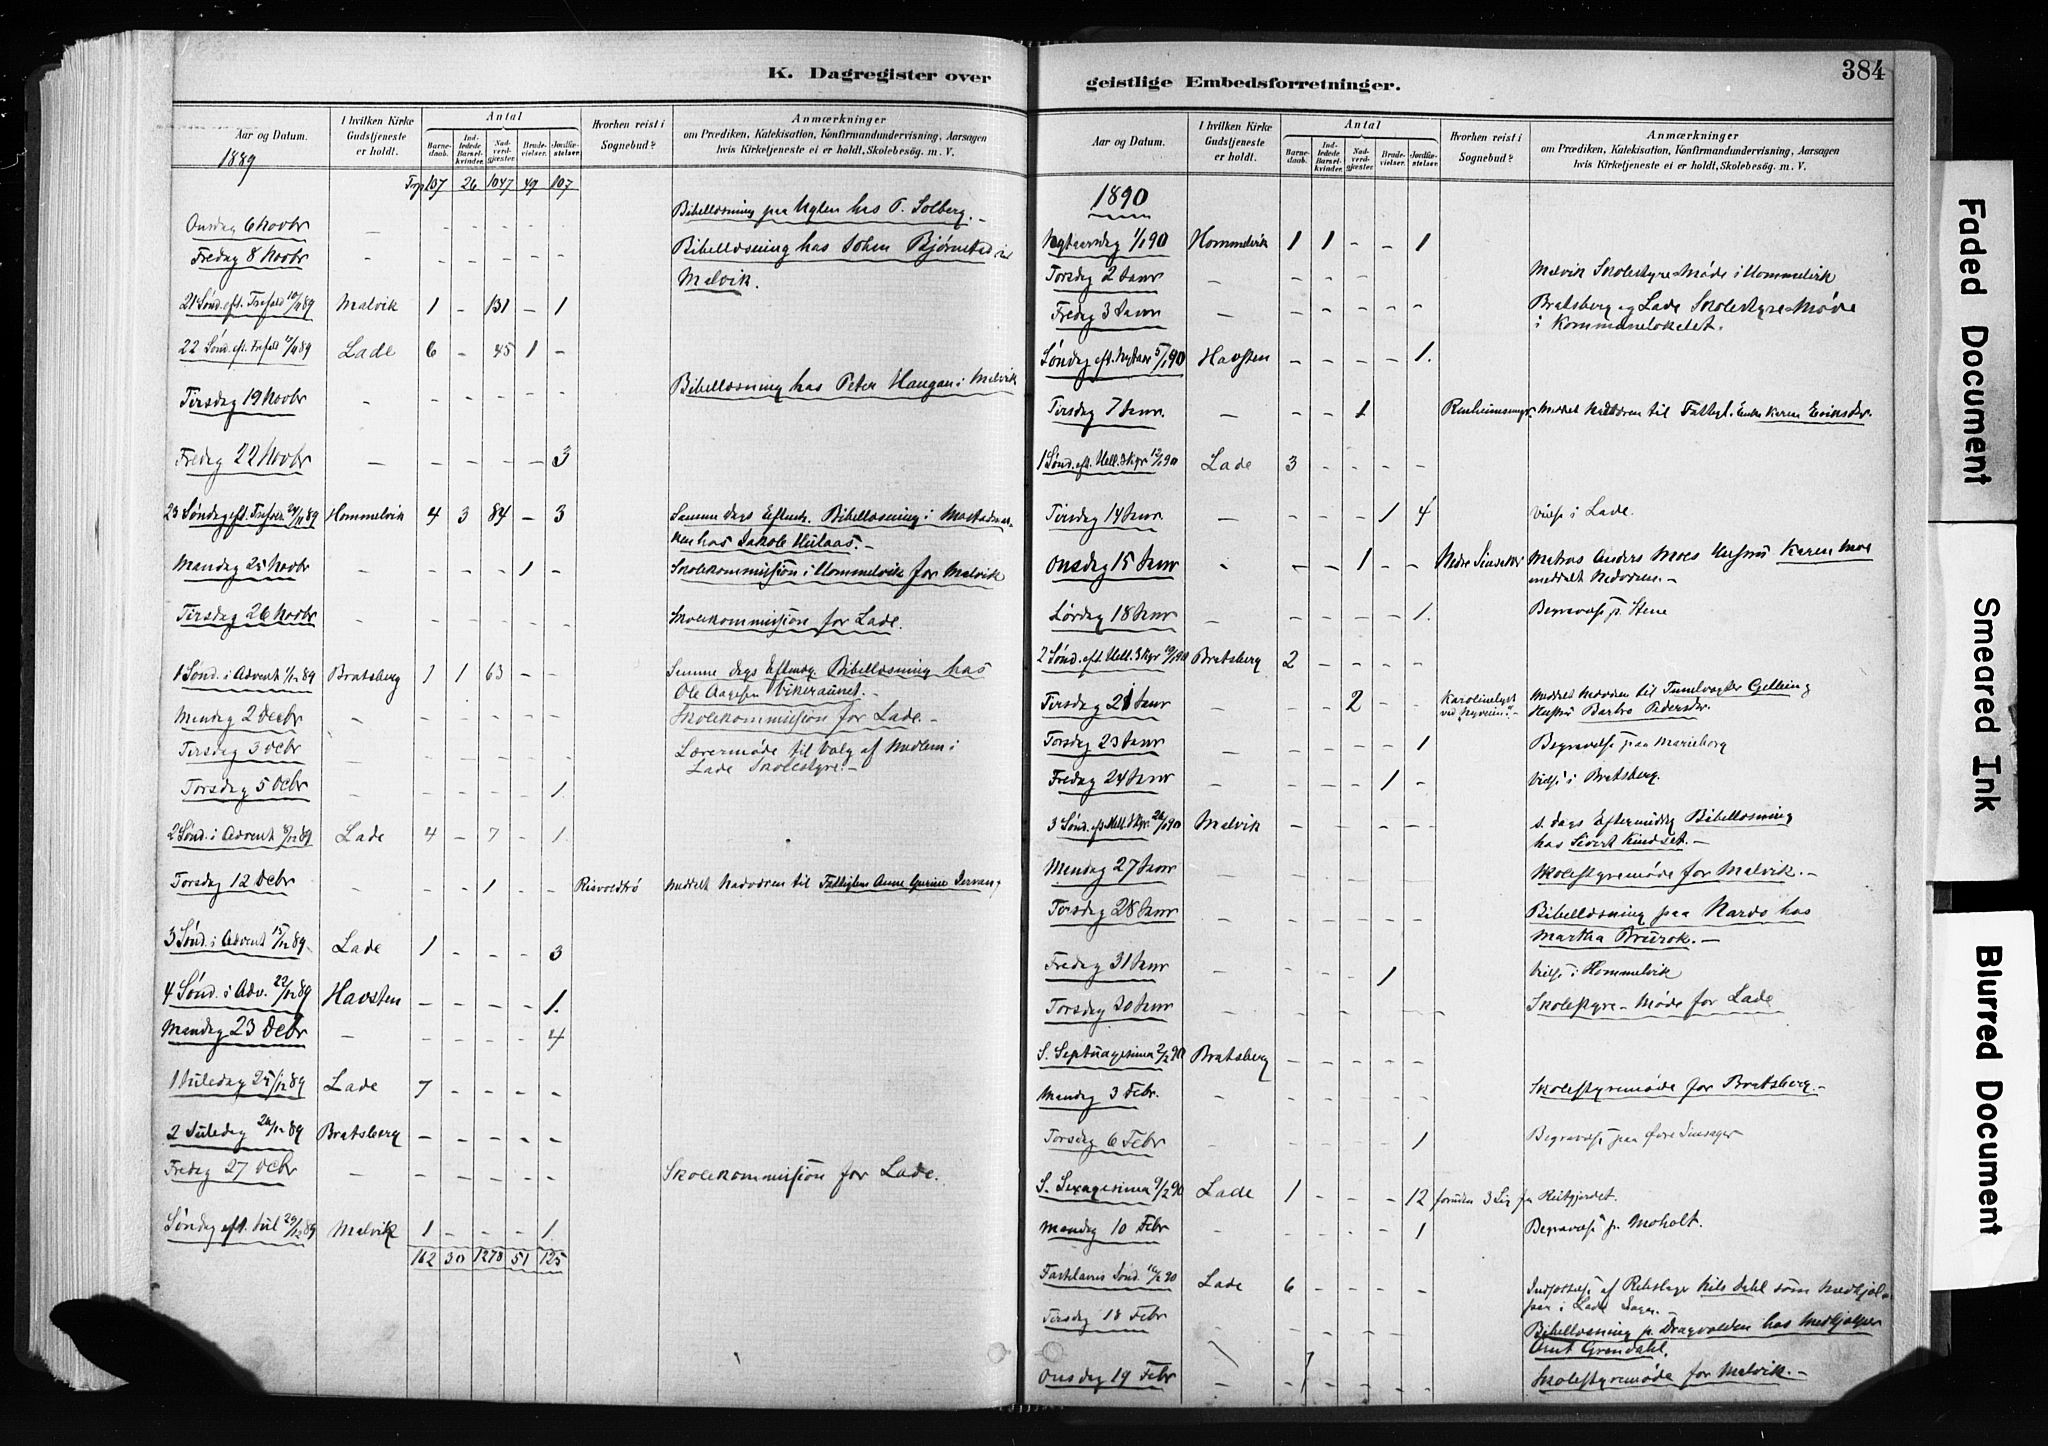 K. Dagregister over
Aar og Datum.
I hvilken Kirke
Gudstjeneste
er holdt.
Antal
Barne-
daab.
Ind-
ledede
Barsel-
kvinder.
Nad-
verd-
gjester
Brude-
vielser.
Jordfæ-
stelser.
Hvorhen reist i
Sognebud?
Anmærkninger
om Prædiken, Katekisation, Konfirmandundervisning, Aarsagen
hvis Kirketjeneste ei er holdt, Skolebesøg. m. V.
1889
107 26 1047 49 107
Onsdag 6 Novbr - - - - - - Bibellæsning paa Uglen hos P. Solberg. -
Fredag 8 Novbr - - - - - - Bibellæsning hos Johan Bjørnstad i
Malvik.
21 Sønd. eft. Trefold 10/11 89 Malvik 1 - 131 - 1
22 Sønd. eft. Trefold 17/11 89 Lade 6 - 45 1 -
Tirsdag 19 Novbr - - - - - - Bibellæsning hos Peter Haugan i Malvik
Fredag 22 Novbr - - - - - 3
23 Søndag eft. Trefold. 24/11 89 Hommelvik 4 3 84 - 3 Samme dags Efterm. Bibellæsning i Mostadmar-
ken hos Jakob Hulaas. -
Mandag 25 Novbr - - - - 1 - Skolekommission i Hommelvik for Malvik
Tirsdag 26 Novbr - - - - - - Skolekommission for Lade.
1 Sønd. i Advent 1/12 89 Bratsberg 1 1 63 - - Samme dags Efterm. Bibellæsning hos
Ole Aagesen Vikeraunet. -
Mandag 2 Decbr - - - - - - Skolekommission for Lade. -
Tirsdag 3 Decbr - - - - - - Lærermøde til Valg af Medlem i
Lade Skolestyre. -
Torsdag 5 Decbr - - - - - 1.
2 Sønd. i Advent 8/12 89 Lade 4 - 7 - 1
Torsdag 12 Decbr - - 1 - - Risvoldtrø Meddelt Nadveren til Fattiglem Anne Gurine
3 Sønd. i Advent 15/12 89. Lade 1 - - - 3
4 Sønd. i Adv. 22/12 89 Havsten - - - - 1.
Mandag 23 Decbr - - - - - 4
1 Juledag 25/12 89 Lade 7 - - - -
2 Juledag 26/12 89 Bratsberg - - - - -
Fredag 27 Decbr - - - - - - Skolekommission for Lade.
Søndag eft. Jul 29/12 89 Malvik 1 - - - 1.
162 30 1278 51 125
geistlige Embedsforretninger.
384
Aar og Datum.
I hvilken Kirke
Gudstjeneste
er holdt.
Antal
Barne-
daab.
Ind-
ledede
Barsel-
kvinder.
Nad-
verd-
gjester
Brude-
vielser.
Jordfæ-
stelser.
Hvorhen reist i
Sognebud?
Anmærkninger
om Prædiken, Katekisation, Konfirmandundervisning, Aarsagen
hvis Kirketjeneste ei er holdt, Skolebesøg. m. V.
1890
Nytaarsdag 1/1 90 Hommelvik 1 1 - - 1
Torsdag 2 Janr - - - - - - Malvik Skolestyre-Møde i Hommelvik
Fredag 3 Janr - - - - - - Bratsberg og Lade Skolestyre-Møde
i Kommunelokalet.
Søndag eft. Nytaar 5/1 90 Havsten - - - - 1.
Tirsdag 7 Janr - - - 1 - - Meddelt Nadveren til Fattigl. Enke Karen Eriksdtr.
1 Sønd. eft. Hell. 3 Kgr 12/1 90 Lade 3 - - - -
Tirsdag 14 Janr - - - - 1 4 Vielse i Lade.
Onsdag 15 Janr - - - 1 - - Nedre Matros Anders Moes Hustru Karen Moe
meddelt Nadveren. -
Lørdag 18 Janr - - - - - 1. Begravelse p. Stene
2 Sønd. eft. Hell. 3 Kgr 19/1 90 Bratsberg 2 - - - -
Tirsdag 21 Janr - - - 2 - - Karolinelyst Meddelt Nadveren til Gelling
Hustru Barbro Pedersdtr.
Torsdag 23 Janr - - - - - 1 Begravelse paa Marieborg
Fredag 24 Janr - - - - 1 - Vielse i Bratsberg.
3 Sønd. eft. Hell. 3 Kgr. 26/1 90 Malvik - - - - - s. dags Eftermiddag Bibellæsning
hos Sivert Kindset. -
Mandag 27 Janr - - - - - - Skolestyremøde for Malvik. -
Torsdag 28 Janr - - - - - - Bibellæsning paa Nardo hos
Martha Brurok. -
Fredag 31 Janr - - - - 1 Vielse i Hommelvik
Torsdag 30 Janr - - - - - - Skolestyre-Møde for Lade
S. Septuagesima 2/2 90 Bratsberg - - - - -
Mandag 3 Febr. - - - - - - Skolestyremøde for Bratsberg. -
Torsdag 6 Febr - - - - - 1 Begravelse paa Øvre
S. Sexagesima 9/2 90 Lade 1 - - - 12 foruden 3 Lig fra Reitgjerdet.
Mandag 10 Febr - - - - - 1 Begravelse p. Moholt.
Fastelavns Sønd. 16/2 90 Lade 6 - - - - Indsættelse af Rebslager Nils Dahl som Medhjæl-
per i Lade Sogn.
Tirsdag 18 Febr - - - - - Bibellæsning p. Dragvolden hos Medhjælper
Arnt Grendahl.
Onsdag 19 Febr - - - - - Skolestyremøde for Malvik. -
Faded Document
Smeared Ink
Blurred Document